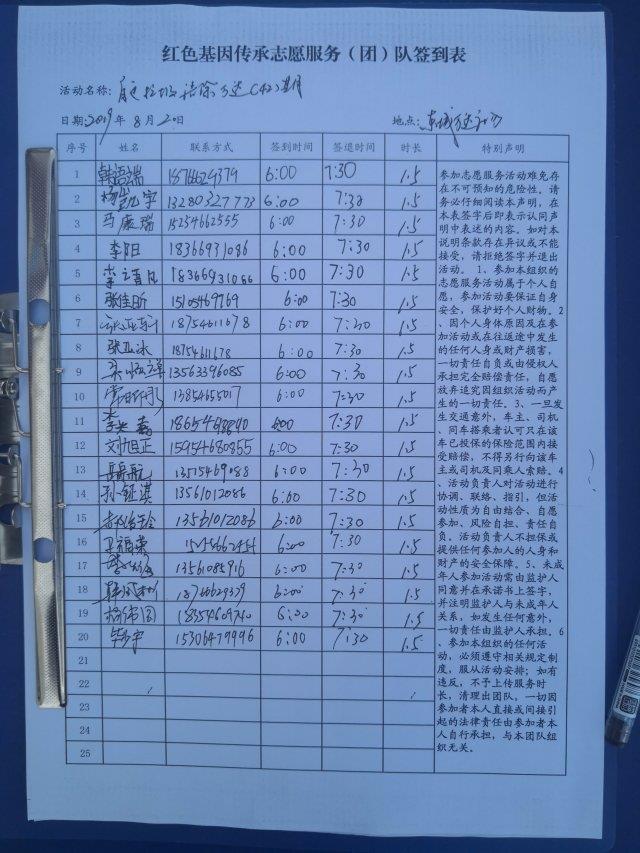 红色基因传承志愿服务（团）队签到表
活动名称：
日期：2019 年 8 月 20日 地点：
序号 姓名 联系方式 签到时间 签退时间 时长 特别声明
1 韩语瑞 18766629379 6:00 7:30 1.5
2 杨凯宇 13280327773 6:00 7:30 1.5
3 马康瑞 15254662555 6:00 7:30 1.5
4 李阳 18366931086 6:00 7:30 1.5
5 18366931086 6:00 7:30 1.5
6 张佳昕 15105469769 6:00 7:30 1.5
7 18754611678 6:00 7:30 1.5
8 张亚冰 18754611678 6:00 7:30 1.5
9 13563396085 6:00 7:30 1.5
10 13854655017 6:00 7:30 1.5
11 6:00 7:30 1.5
12 刘恒正 15954680855 6:00 7:30 1.5
13 岳航 13515469088 6:00 7:30 1.5
14 孙钰淇 13561012086 6:00 7:30 1.5
15 13561012086 6:00 7:30 1.5
16 6:00 7:30 1.5
17 13561085916 6:00 7:30 1.5
18 18766629379 6:00 7:30 1.5
19 18554609740 6:00 7:30 1.5
20 15306479996 6:00 7:30 1.5
21
22
23
24
25
参加志愿服务活动难免存
在不可预知的危险性。请
务必仔细阅读本声明，在
本表签字后即表示认同声
明中表述的内容。如对本
说明条款存在异议或不能
接受，请拒绝签字并退出
活动。 1、参加本组织的
志愿服务活动属于个人自
愿，参加活动要保证自身
安全，保护好个人财物。2
、因个人身体原因及在参
加活动或在往返途中发生
的任何人身或财产损害，
一切责任自负或由侵权人
承担完全赔偿责任，自愿
放弃追究因组织活动而产
生的一切责任。3、一旦发
生交通意外，车主、司机
、同车搭乘者认可只在该
车已投保的保险范围内接
受赔偿，不得另行向该车
主或司机及同乘人索赔。4
、活动负责人对活动进行
协调、联络、指引，但活
动性质为自由结合、自愿
参加、风险自担、责任自
负。活动负责人不担保或
提供任何参加人的人身和
财产的安全保障。5、未成
年人参加活动需由监护人
同意并在承诺书上签字，
并注明监护人与未成年人
关系，如发生任何意外，
一切责任由监护人承担。6
、参加本组织的任何活
动，必须遵守相关规定制
度，服从活动安排；如有
违反，不予上传服务时
长，清理出团队，一切因
参加者本人直接或间接引
起的法律责任由参加者本
人自行承担，与本团队组
织无关。